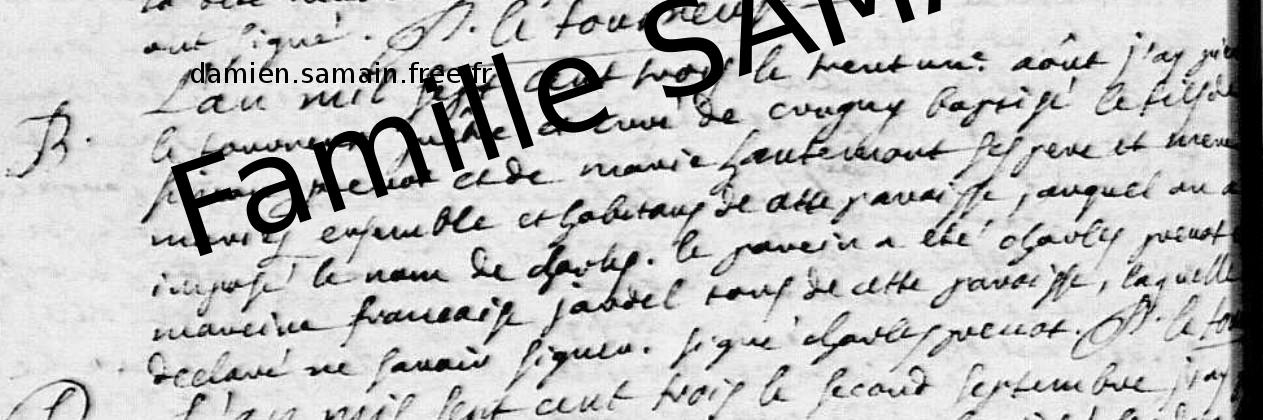 ont signé. P. le tourneur
damien.samain.free.fr
Famille SAMA
L'an mil sept cent trois le trent un.e aôut j'ay pie
B. le tourneur curé de crugny baptisé le fils de
prenot et de marie hautemont ses pere et mere
mariés ensemble et habitans de cette paroisse, auquel on a
imposé le nom de charles. le parein a été charles prenot
mareine francaise jardel tous de cette paroisse, laquelle
declaré ne savoir signer. signé charles prenot. P. le tou
L'an mil sept cent trois le second septembre j'ay